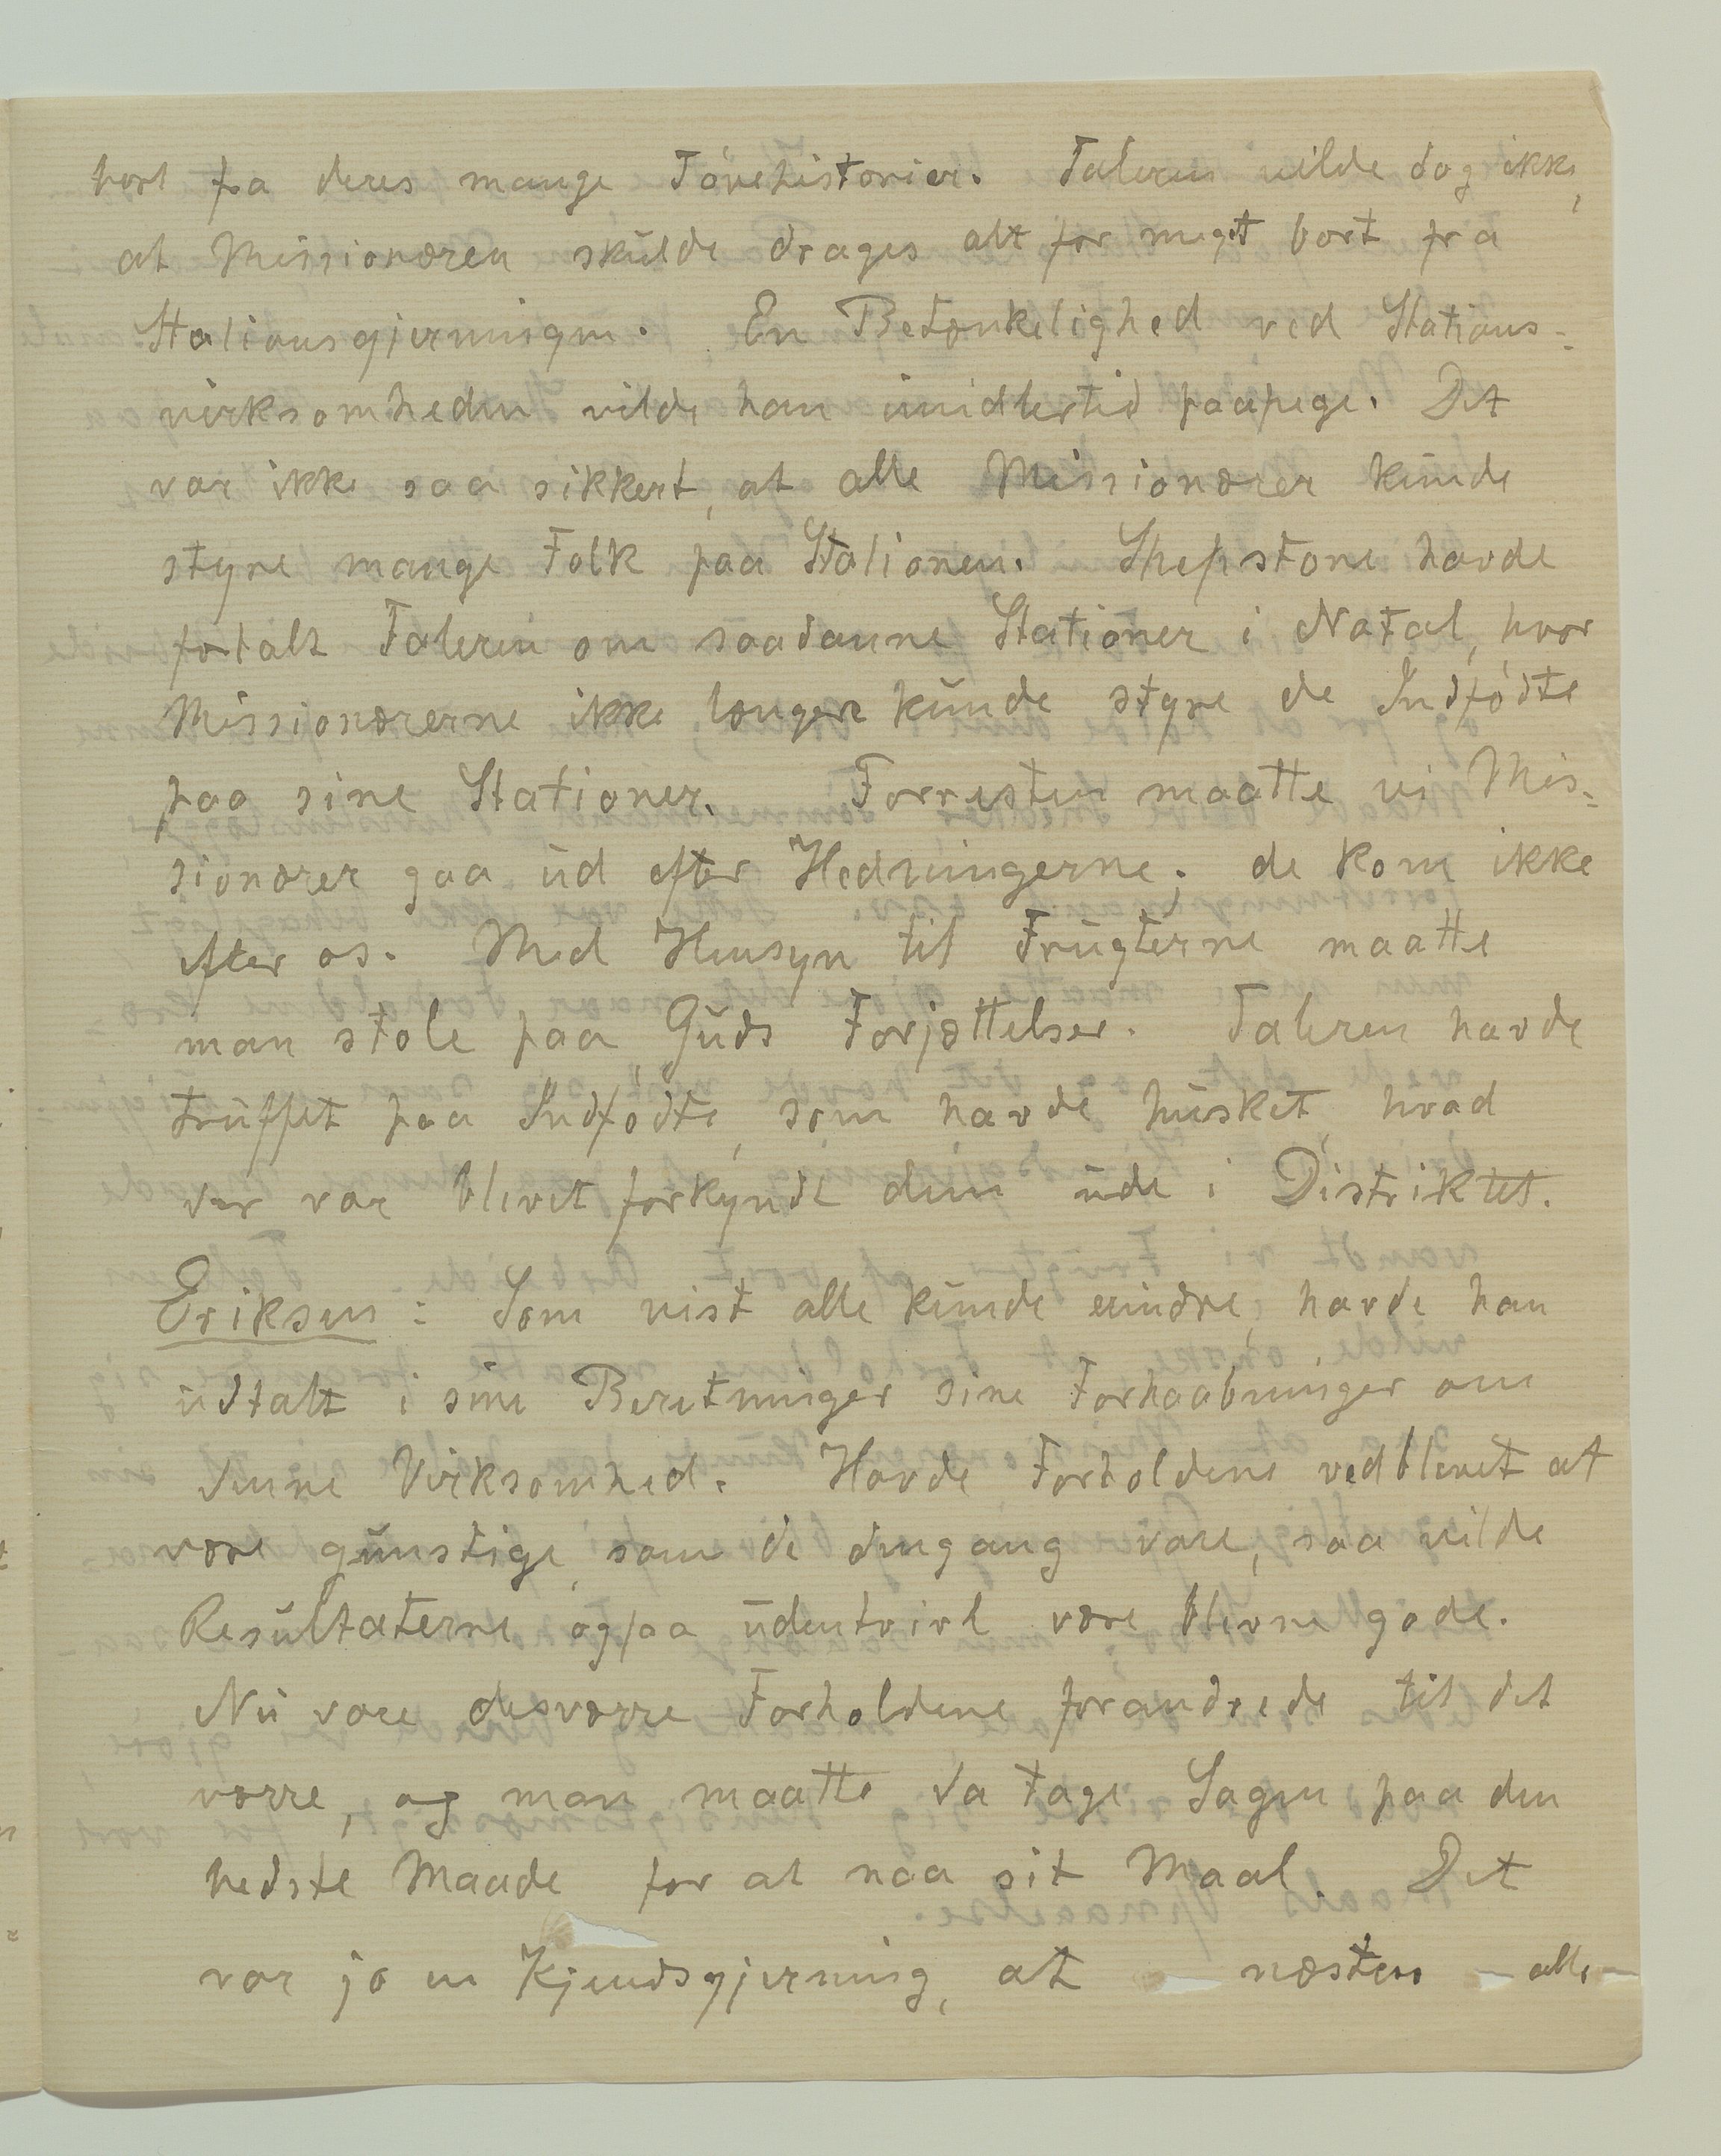 hørt paa deres mange Tövehistorier. Taleren vilde dog ikke,
at Missionæren skulde drages alt for meget bort fra
Stationsgjerningen. En Betænkelighed ved Stations-
virksomheden vilde han imidlertid paapege. Det
var ikke saa sikkert, at alle Missionærer kunde
styre mange Folk paa Stationen. Shepstone havde
fortalt Taleren om saadanne Stationer i Natal, hvor
Missionærerne ikke længere kunde styre de Indfödte
paa sine Stationer. Forresten maatte vi Mis-
sionærer gaa ud efter Hedningerne; de kom ikke
efter os. Med Hensyn til Frugterne maatte
man stole paa Guds Forjættelser. Taleren havde
truffet paa Indfödte, som havde husket, hvad
der var blevet forkyndt dem ude i Distriktet.
Eriksen: Som vist alle kunde erindre, havde han
udtalt i sine Beretninger sine Forhaabninger om
denne Virksomhed. Havde Forholdene vedblevet at
være gunstige, som de dengang vare, saa vilde
Resultaterne ogsaa udentvivl være blevne gode.
Nu vare desværre Forholdene forandrede til det
værre, og man maatte da tage Sagen paa den
bedste Maade for at naa sit Maal. Det
var jo en Kjendsgjerning, at næsten alle